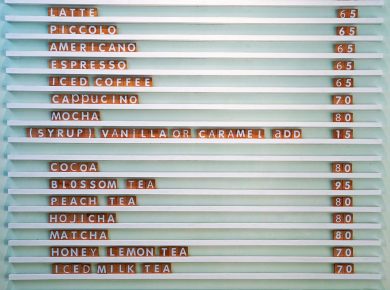 LATTE 65
PICCOLO 65
AMERICANO 65
ESPRESSO 65
ICED COFFEE 65
CAppuCINO 70
MOCHA 80
(SYRUP) VANILLA OR CARAMEL ADD 15
COCOA 80
BLOSSOM TEA 95
PEACH TEA 80
HOJICHA 80
MATCHA 80
HONEY LEMON TEA 70
ICED MILK TEA 70